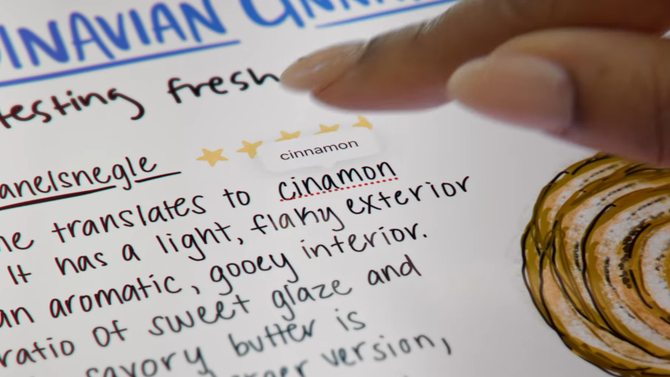 testing fresh
cinnamon
translates to cinamon
It has a light, flaky exterior
an aromatic, gooey interior.
ratio of sweet glaze and
savory butter is
version,